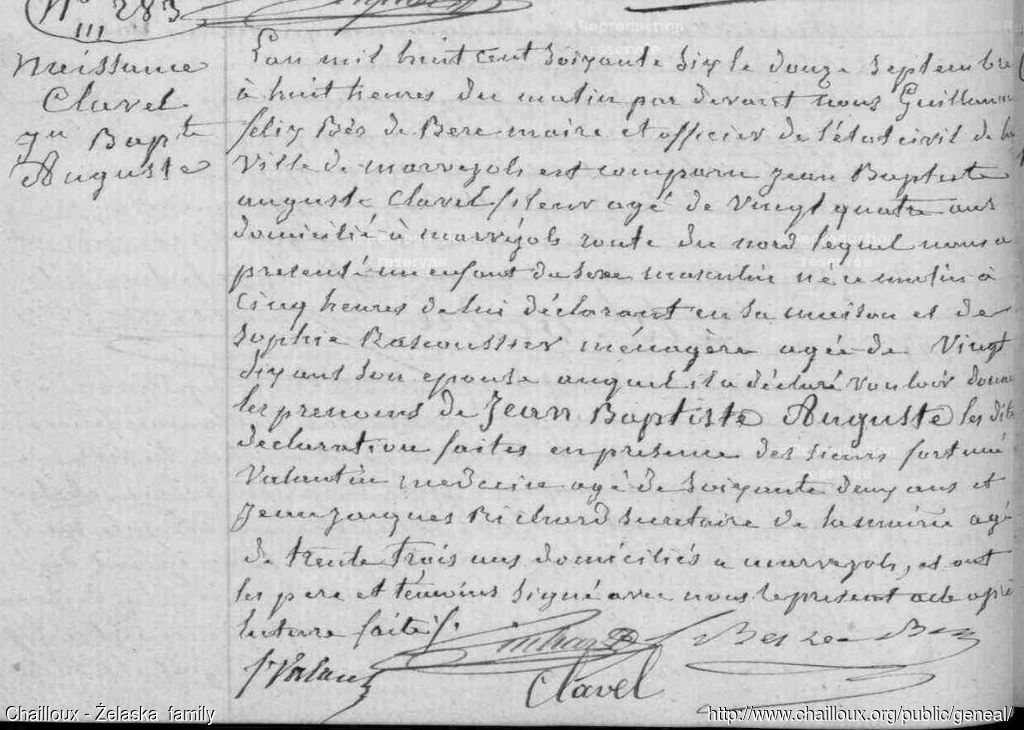 N° 283
Naissance
Clavel
Jn Bapte
Auguste
L'an mil huit cent soixante six le douze septembre
à huit heures du matin par devant nous Guillaume
felix Bés de Berc maire et officier de l'état civil de la
Ville de marvejols est comparu Jean Baptiste
auguste Clavel fileur agé de vingt quatre ans
domicilié à marvejols route du nord lequel nous a
presenté un enfant du sexe masculin né ce matin à
cinq heures de lui déclarant en sa maison et de
Sophie Rascoussier ménagère agée de Vingt
dix ans son epouse auquel il a déclaré vouloir donner
les prenoms de Jean Baptiste Auguste les dites
declaration faites en presence des sieurs fortuné
Valantin medecin agé de soixante deux ans et
Jean Jacques Richard secretaire de la mairie agé
de trente trois ans domiciliés a marvejols, et ont
les pere et témoins signé avec nous le present acte après
lecture faite.
Clavel
Chailloux - Żelaska family
http://www.chailloux.org/public/geneal/